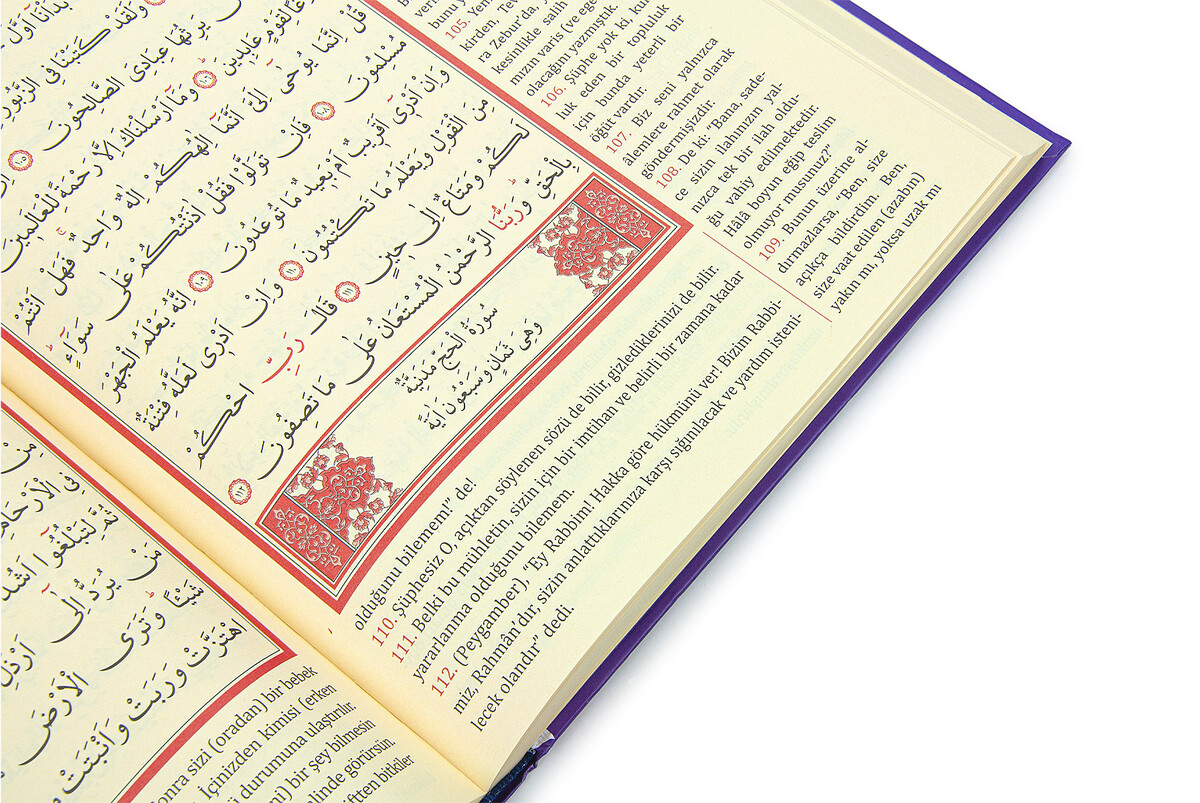 قُلْ اِنَّمَا يُوحٰٓى اِلَيَّ اَنَّمَٓا اِلٰهُكُمْ اِلٰهٌ وَاحِدٌۚ فَهَلْ اَنْتُمْ
مُسْلِمُونَ ﴿١٠٨﴾ فَاِنْ تَوَلَّوْا فَقُلْ اٰذَنْتُكُمْ عَلٰى سَوَٓاءٍۜ
وَاِنْ اَدْرٓى اَقَرٖيبٌ اَمْ بَعٖيدٌ مَا تُوعَدُونَ ﴿١٠٩﴾ اِنَّهُ يَعْلَمُ الْجَهْرَ
مِنَ الْقَوْلِ وَيَعْلَمُ مَا تَكْتُمُونَ ﴿١١٠﴾ وَاِنْ اَدْرٖى لَعَلَّهُ فِتْنَةٌ
لَكُمْ وَمَتَاعٌ اِلٰى حٖينٍ ﴿١١١﴾ قَالَ رَبِّ احْكُمْ
بِالْحَقِّۜ وَرَبُّنَا الرَّحْمٰنُ الْمُسْتَعَانُ عَلٰى مَا تَصِفُونَ ﴿١١٢﴾
سُورَةُ الْحَجِّ مَدَنِيَّةٌ
وَهِيَ ثَمَانٍ وَسَبْعُونَ اٰيَةً
105.
kirden, Tev
ra Zebur'da,
kesinlikle salih
mızın varis (ve ege
olacağını yazmıştık
106. Şüphe yok ki, kul
luk eden bir topluluk
için bunda yeterli bir
öğüt vardır.
107. Biz seni yalnızca
âlemlere rahmet olarak
göndermişizdir.
108. De ki: "Bana, sade-
ce sizin ilahınızın yal-
nızca tek bir ilah oldu-
ğu vahiy edilmektedir.
Hâlâ boyun eğip teslim
olmuyor musunuz?"
109. Bunun üzerine al-
dırmazlarsa, "Ben, size
açıkça bildirdim. Ben,
size vaat edilen (azabın)
yakın mı, yoksa uzak mı
olduğunu bilemem!" de!
110. Şüphesiz O, açıktan söylenen sözü de bilir, gizlediklerinizi de bilir.
111. Belki bu mühletin, sizin için bir imtihan ve belirli bir zamana kadar
yararlanma olduğunu bilemem.
112. (Peygamber), "Ey Rabbim! Hakka göre hükmünü ver! Bizim Rabbi-
miz, Rahmân'dır, sizin anlattıklarınıza karşı sığınılacak ve yardım isteni-
lecek olandır" dedi.
فِي الْاَرْحَامِ
ثُمَّ لِتَبْلُغُٓوا اَشُدَّ
مَنْ يُرَدُّ اِلٰٓى اَرْذَلِ
شَيْـًٔاۜ وَتَرَى الْاَرْضَ
اهْتَزَّتْ وَرَبَتْ وَاَنْبَتَتْ
sonra sizi (oradan) bir bebek
İçinizden kimisi (erken
durumuna ulaştırılır.
bir şey bilmesin
linde görürsün.
iftten bitkiler